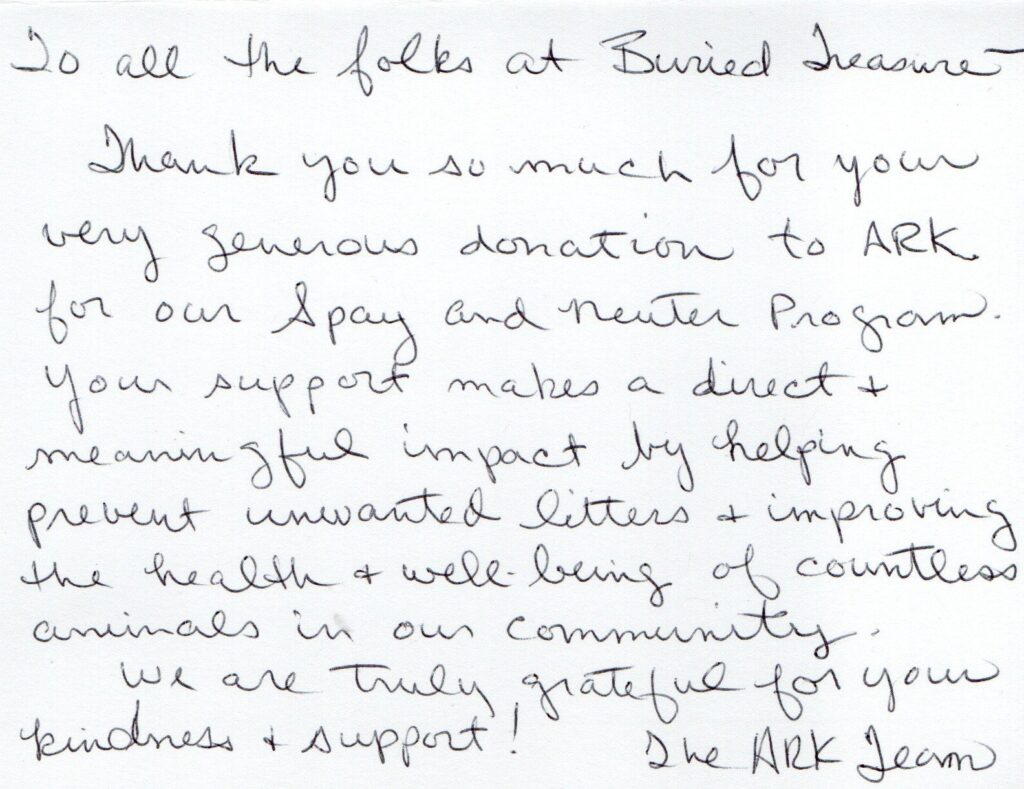 To all the folks at Buried Treasure –
Thank you so much for your
very generous donation to ARK
for our Spay and Neuter Program.
Your support makes a direct +
meaningful impact by helping
prevent unwanted litters + improving
the health + well-being of countless
animals in our community.
We are truly grateful for your
kindness + support!
The ARK Team